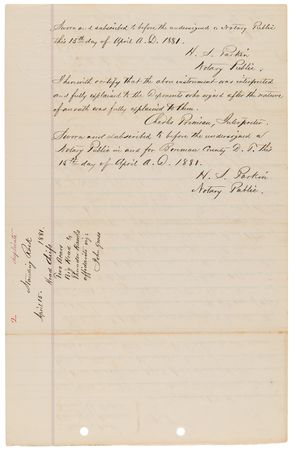 Sworn and subscribed to before the undersigned a Notary Public
this 15th day of April A.D. 1881.
H. S. Parkin
Notary Public.
I herewith certify that the above instrument was interpreted
and fully explained to the deponents who signed after the nature
of an oath was fully explained to them.
Charles Interpreter.
Sworn and subscribed to before the undersigned a
Notary Public in and for County D. T. this
15th day of April A.D. 1881.
H. S. Parkin
Notary Public.
2 duplicate
Standing Rock
April 15. 1881.
Head Chiefs
Two Bears
Big Head &
Thunder Hawk's
affidavits vs:
John Grass